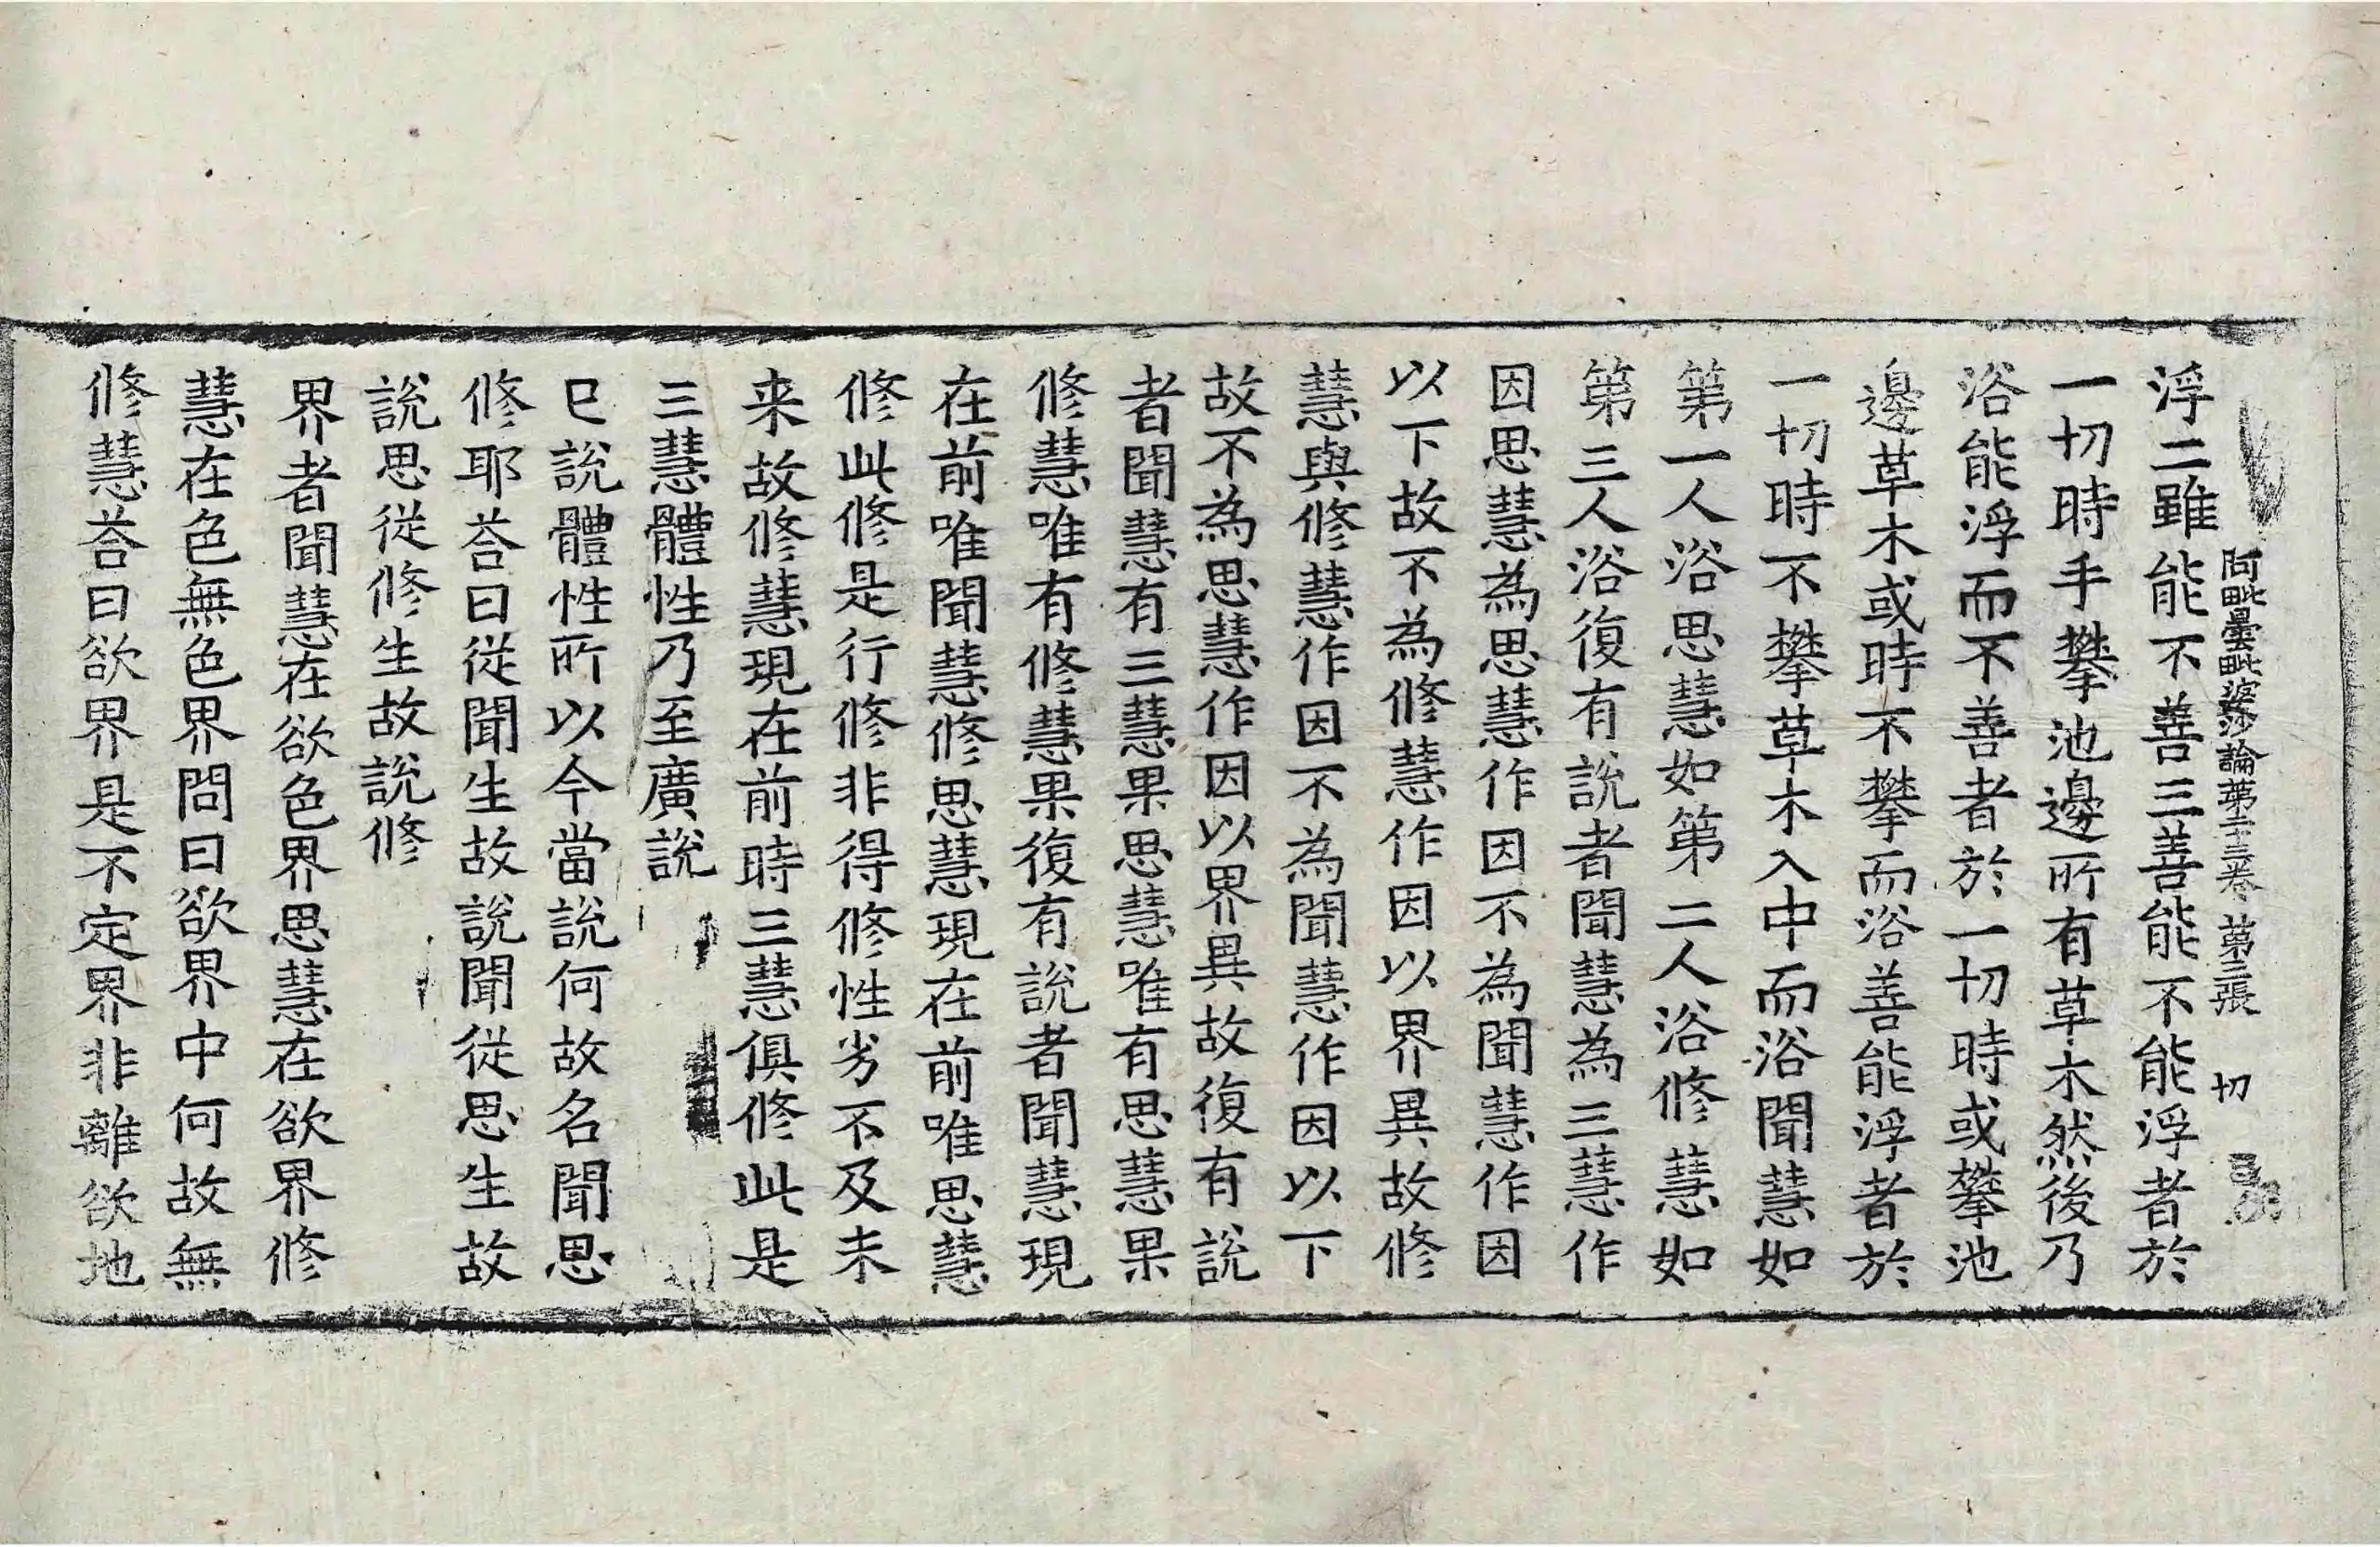 阿毗曇毗婆沙論第二十三卷 第三張 切
浮二雖能不善三善能不能浮者於
一切時手攀池邊所有草木然後乃
浴能浮而不善者於一切時或攀池
邊草木或時不攀而浴善能浮者於
一切時不攀草木入中而浴聞慧如
第一人浴思慧如第二人浴修慧如
第三人浴復有說者聞慧為三慧作
因思慧為思慧作因不為聞慧作因
以下故不為修慧作因以界異故修
慧與修慧作因不為聞慧作因以下
故不為思慧作因以界異故復有說
者聞慧有三慧果思慧唯有思慧果
修慧唯有修慧果復有說者聞慧現
在前唯聞慧修思慧現在前唯思慧
修此修是行修非得修性劣不及未
来故修慧現在前時三慧俱修此是
三慧體性乃至廣說
已說體性所以今當說何故名聞思
修耶荅曰從聞生故說聞從思生故
說思從修生故說修
界者聞慧在欲色界思慧在欲界修
慧在色無色界問曰欲界中何故無
修慧荅曰欲界是不定界非離欲地